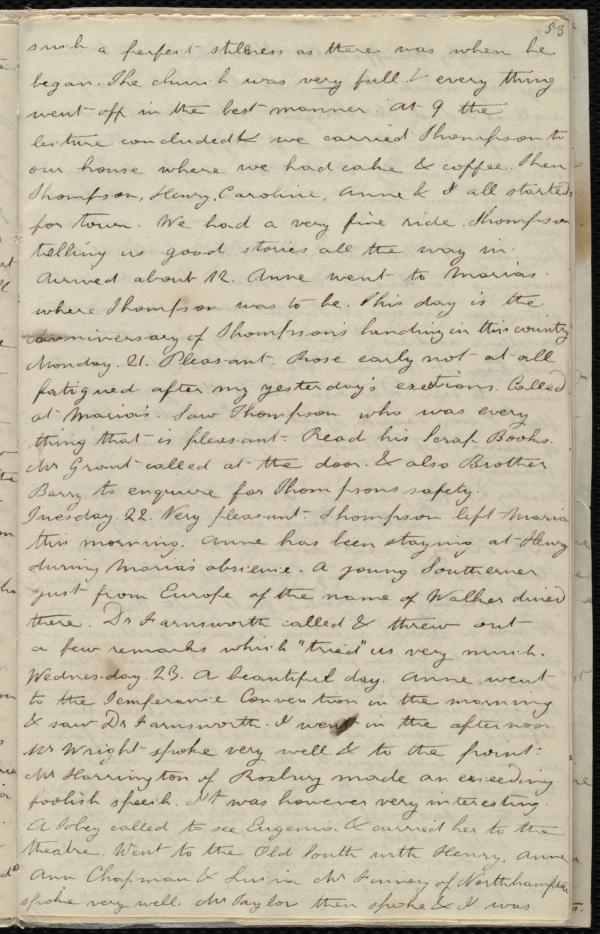 53
such a perfect stillness as there was when he
began. The church was very full & every thing
went off in the best manner. At 9 the
lecture concluded & we carried Thompson to
our house where we had cake & coffee. Then
Thompson, Henry, Caroline, Anne & I all started
for town. We had a very fine ride. Thompson
telling us good stories all the way in.
Arrived about 12. Anne went to Maria's
where Thompson was to be. This day is the
anniversary of Thompson's landing in this country
Monday. 21. Pleasant. Rose early not at all
fatigued after my yesterday's exertions. Called
at Maria's. Saw Thompson who was every
thing that is pleasant. Read his Scrap Books.
Mr Grant called at the door. & also Brother
Barry to enquire for Thompsons safety.
Tuesday. 22. Very pleasant. Thompson left Maria
this morning. Anne has been staying at Henry
during Maria's absence. A young Southerner
just from Europe of the name of Walker dined
there. Dr Farnsworth called & threw out
a few remarks which "tried" us very much.
Wednesday. 23. A beautiful day. Anne went
to the Temperance Convention in the morning
& saw Dr Farnsworth. I went in the afternoon
Mr Wright spoke very well & to the point.
Mr Harrington of Roxbury made an exceeding
foolish speech. It was however very interesting.
A Tobey called to see Eugenia & carried her to the
theatre. Went to the Old South with Henry, Anne
Ann Chapman & Lucia Mr Finney of Northhampton
spoke very well. Mr Taylor then spoke & I was